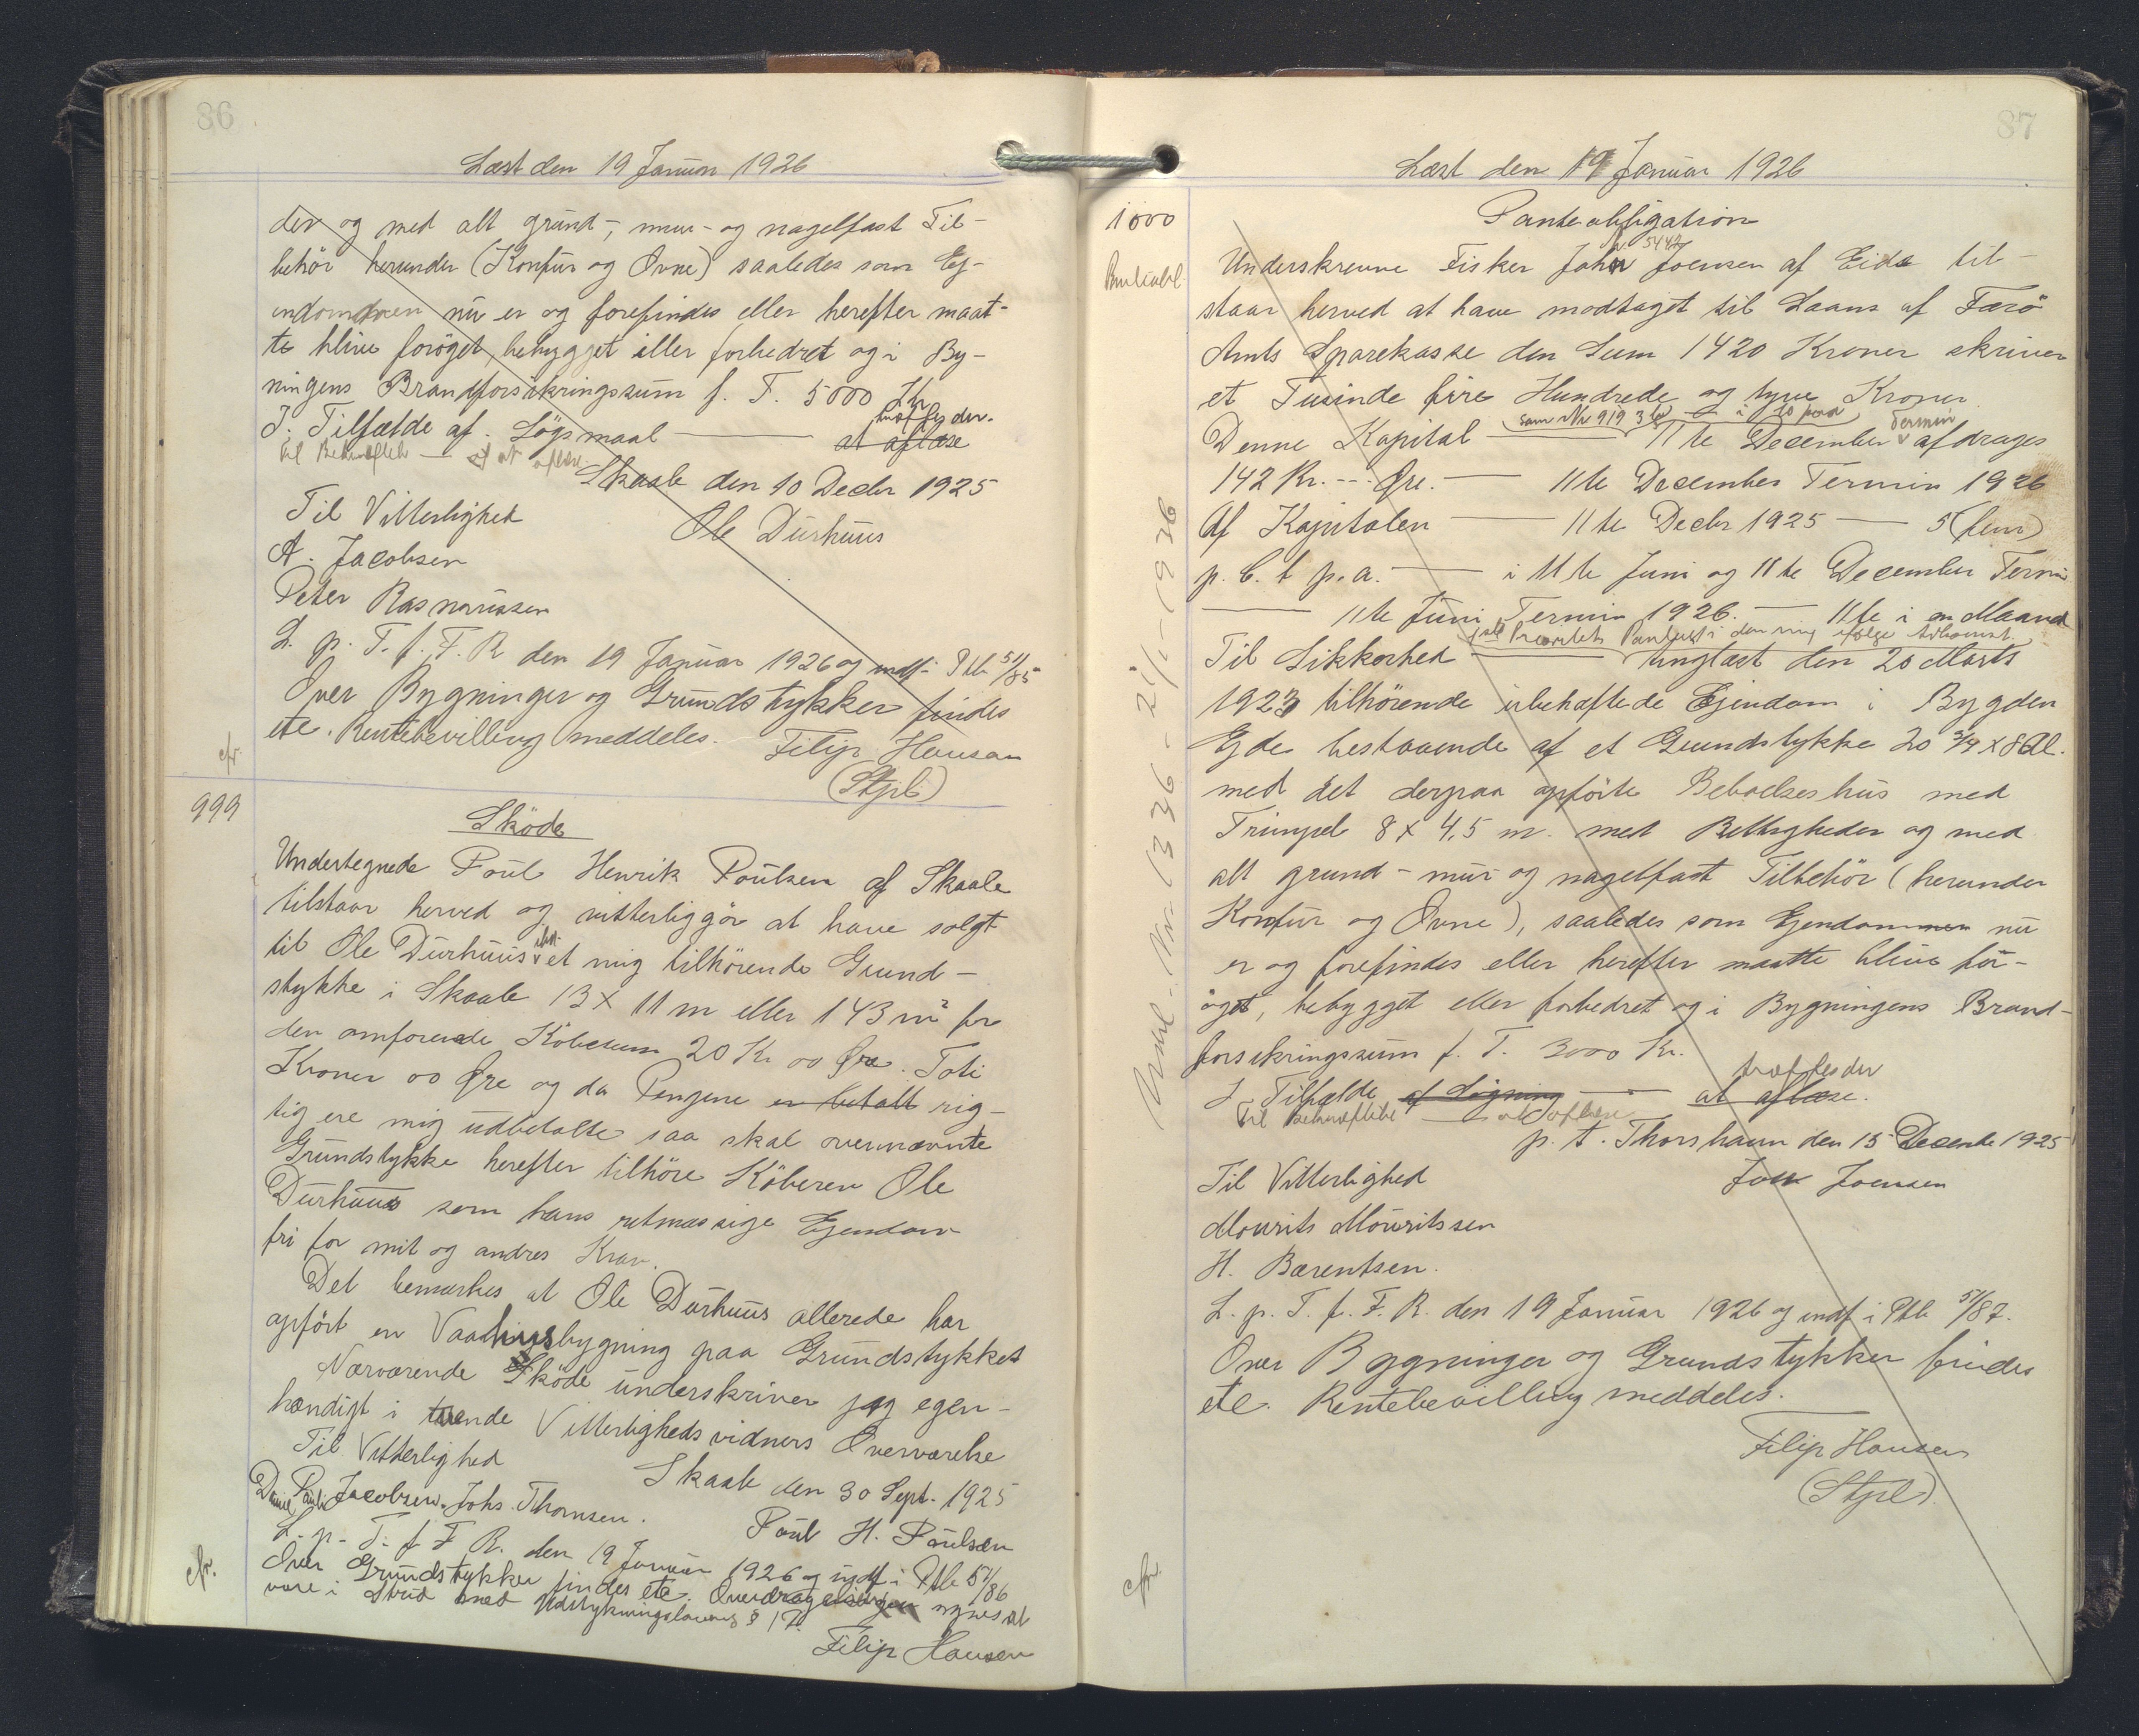 86
Læst den 19 Januar 1926
der og med alt grund-, mur- og nagelfast Til-
behör herunder (Komfur og Ovne) saaledes som Ej-
endommen nu er og forefindes eller herefter maat-
te blive forøget, bebygget eller forbedret og i Byg-
ningens Brandforsikringssum f. T. 5000 Kr
I Tilfælde af Lögsmaal —— træffes der.
at aflæse
til Bekræftelse — at aflæse
Skaale den 10 Decbr 1925
Til Vitterlighed
Ole Durhuus
A. Jacobsen
Peter Rasmussen
L. p. T. f. F. R den 19 Januar 1926 og indf. i Ptb 51/85
Over Bygninger og Grundstykker findes
etc. Rentebevilling meddeles.
Filip Hansen
(Stpl)
cfr.
999
Sköde
Undertegnede Poul Henrik Poulsen af Skaale
tilstaar herved og vitterliggör at have solgt
til Ole Durhuus ibd. et mig tilhörende Grund-
stykke i Skaale 13 x 11 m eller 143 m² for
den omforenede Köbesum 20 Kr 00 Øre. Toti
Kroner 00 Øre og da Pengene er betalt rig-
tig ere mig udbetalte saa skal overnævnte
Grundstykke herefter tilhöre Köberen Ole
Durhuus som hans retmæssige Ejendom
fri for mit og andres Krav.
Det bemærkes at Ole Durhuus allerede har
opfört en Vaaningsbygning paa Grundstykket
Nærværende Sköde underskriver jeg egen-
hændigt i tvende Vitterlighedsvidners Overværelse
Til Vitterlighed
Skaale den 30 Sept. 1925
Daniel Pauli Jacobsen. Johs. Thomsen.
Poul H. Poulsen
L. p. T. f F R. den 19 Januar 1926 og indf i Ptb 51/86
Over Grundstykker findes etc. Overdragelsen synes at
være i Strid med Udstykningslovens § 17.
Filip Hansen
cfr.
87
Læst den 19 Januar 1926
1000
Panteobligation
Underskrevne Fisker John Joensen af Eide til-
staar herved at have modtaget til Laans af Færö
Amts Sparekasse den Sum 1420 Kroner skriver
et Tusinde fire Hundrede og tyve Kroner
som Nr 919 3
Denne Kapital —— 11te December Termin afdrages
142 Kr. -- Øre. —— 11te December Termin 1926
Af Kapitalen —— 11te Decbr 1925 —— 5 (fem)
p. C. t p. a. —— i 11te Juni og 11te December Termin
—— 11te Juni Termin 1926. —— 11te i en Maaned
1ste Prioritets Panteret i den mig ifølge Adkomst
Til Sikkerhed —— tinglæst den 20 Marts
1923 tilhörende ubehæftede Ejendom i Bygden
Ejde bestaaende af et Grundstykke 20 3/4 x 8 Al.
med det derpaa opförte Beboelseshus med
Trimpel 8 x 4,5 m. med Rettigheder og med
alt grund- mur- og nagelfast Tilbehör (herunder
Komfur og Ovne), saaledes som Ejendommen nu
er og forefindes eller herefter maatte blive for-
öget, bebygget eller forbedret og i Bygningens Brand-
forsikringssum f. T. 3000 Kr.
træffes der
I Tilfælde af Lögning —— at aflæse.
Til Bekræftelse —— at aflæse
p. t. Thorshavn den 15 Decembr 1925
Til Vitterlighed
John Joensen
Mourits Mouritssen
H. Bærentsen.
L. p. T. f. F. R. den 19 Januar 1926 og indf i Ptb 51/87.
Over Bygninger og Grundstykker findes
etc. Rentebevilling meddeles.
Filip Hansen
(Stpl).
cfr.